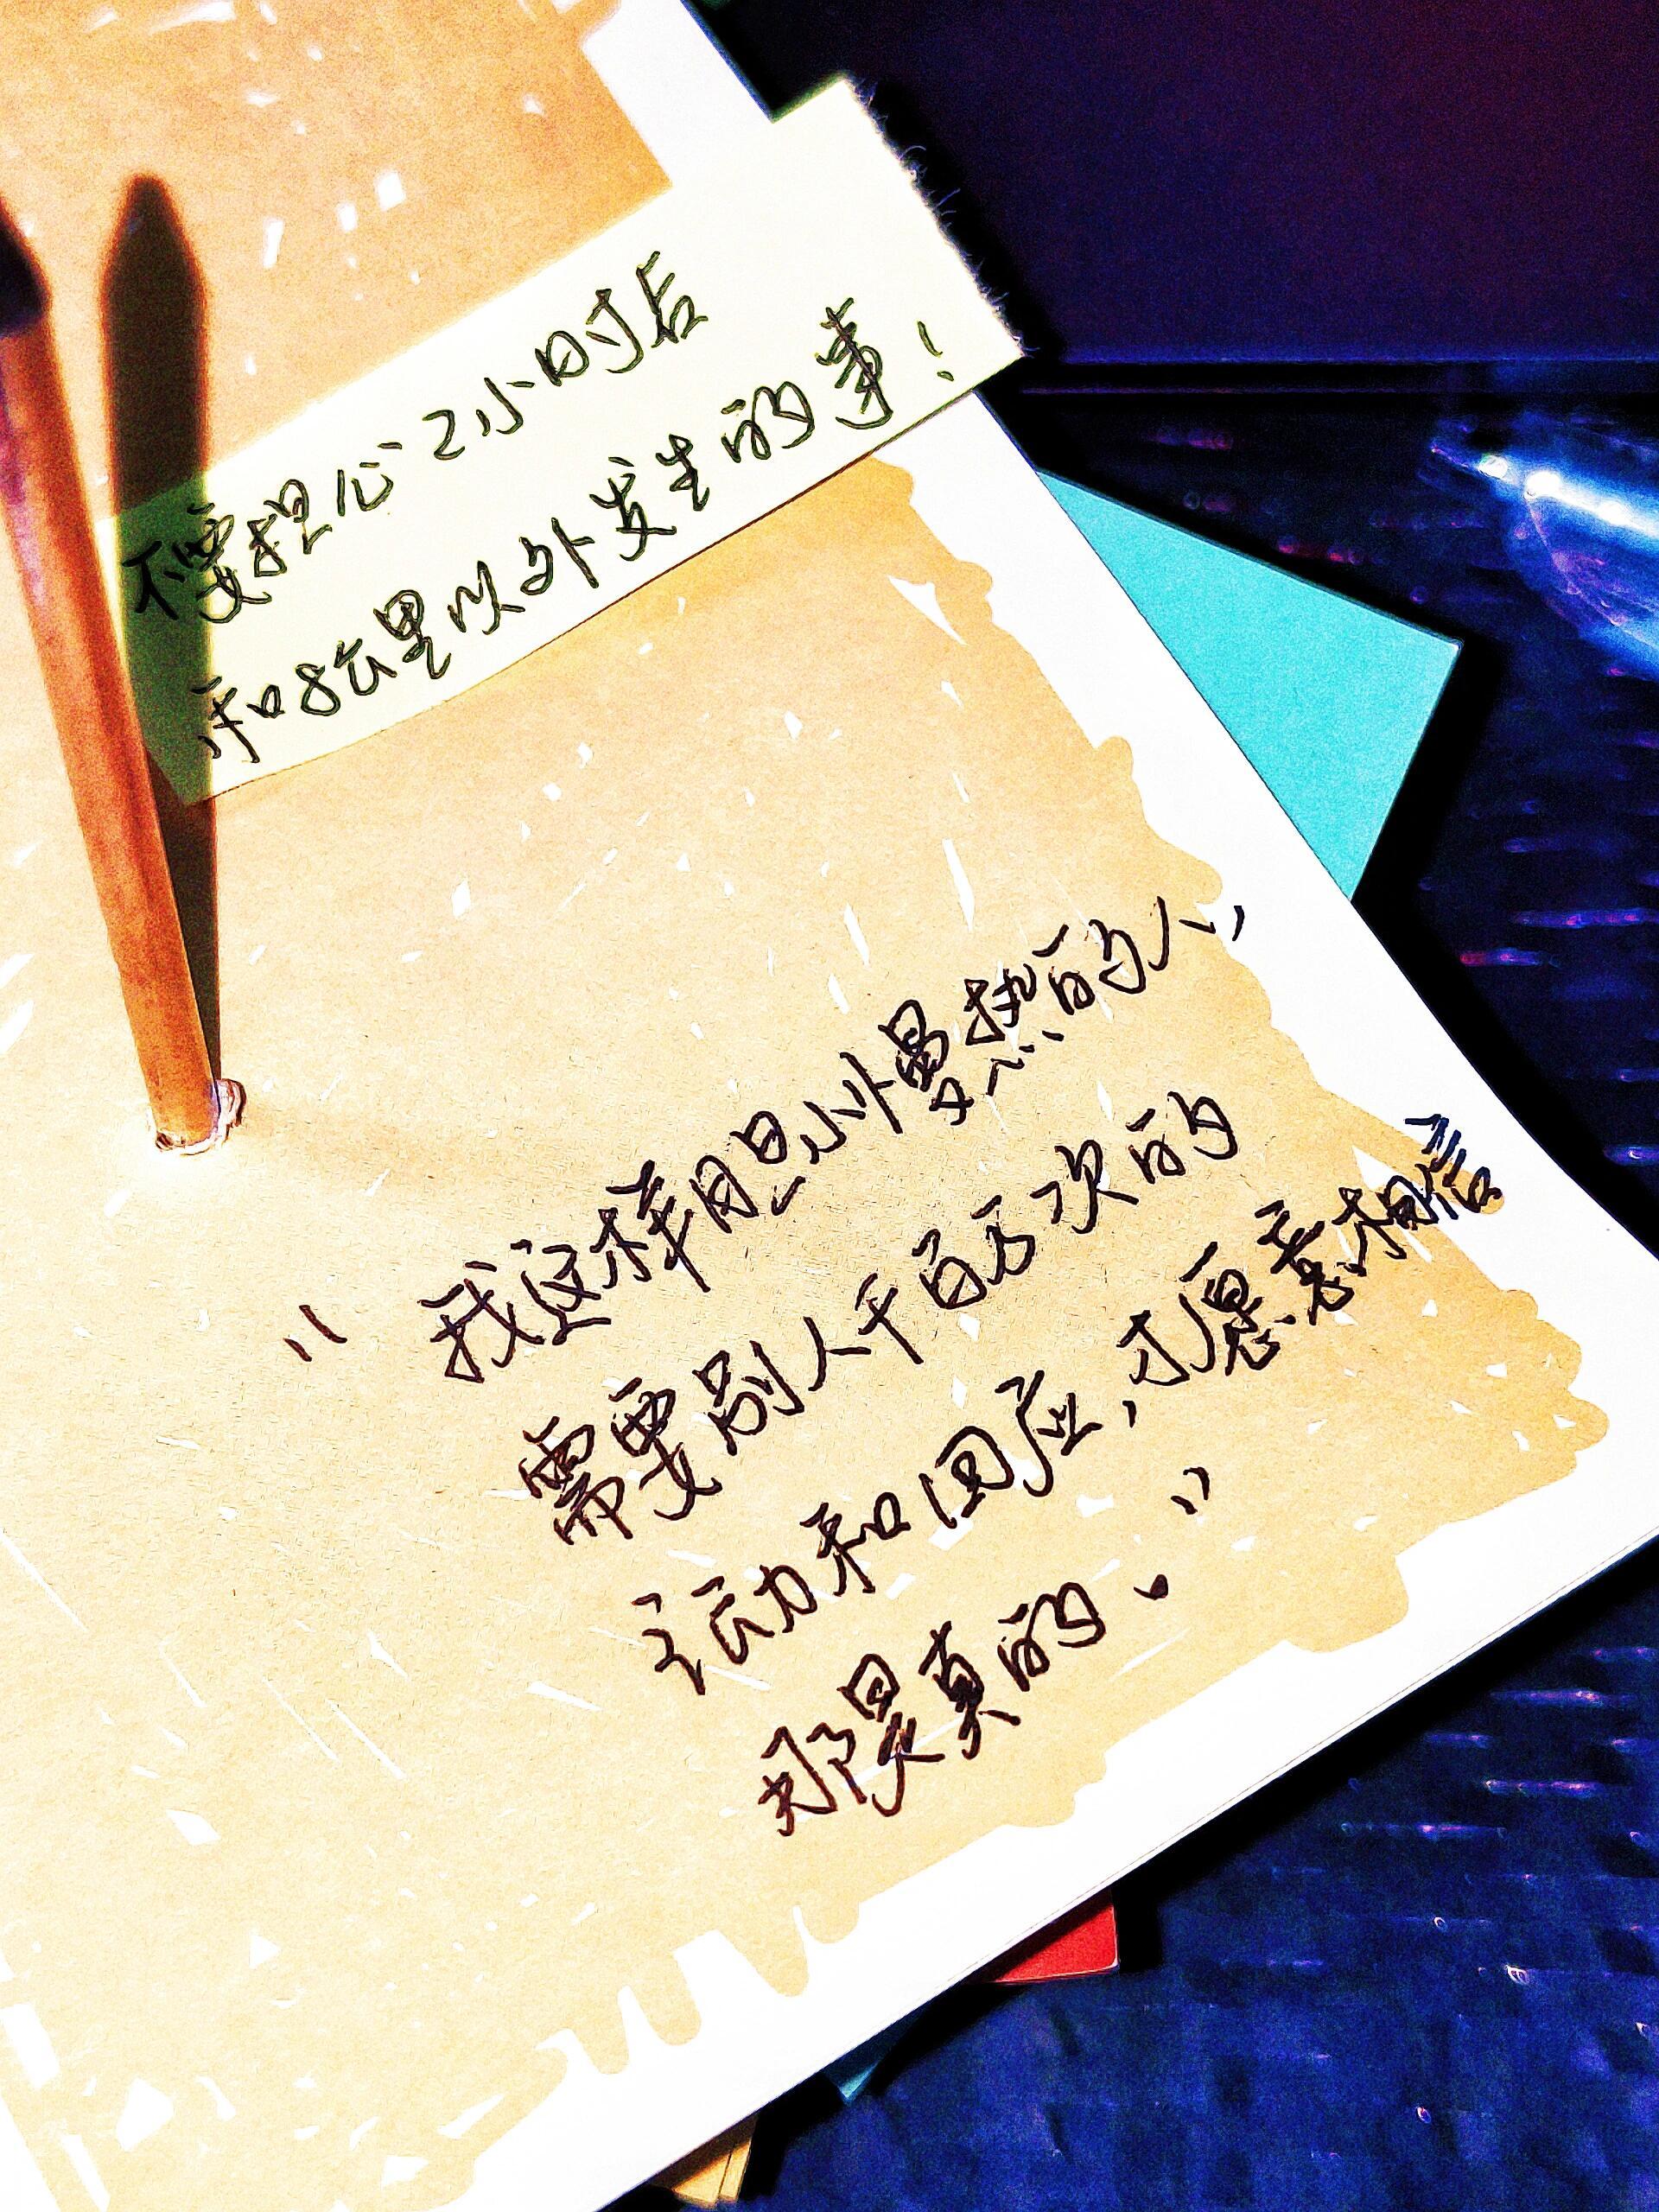 不要担心2小时后
和8公里以外发生的事！
“我这样胆小慢热的人，
需要别人千百万次的
主动和回应，才愿意相信
那是真的。”